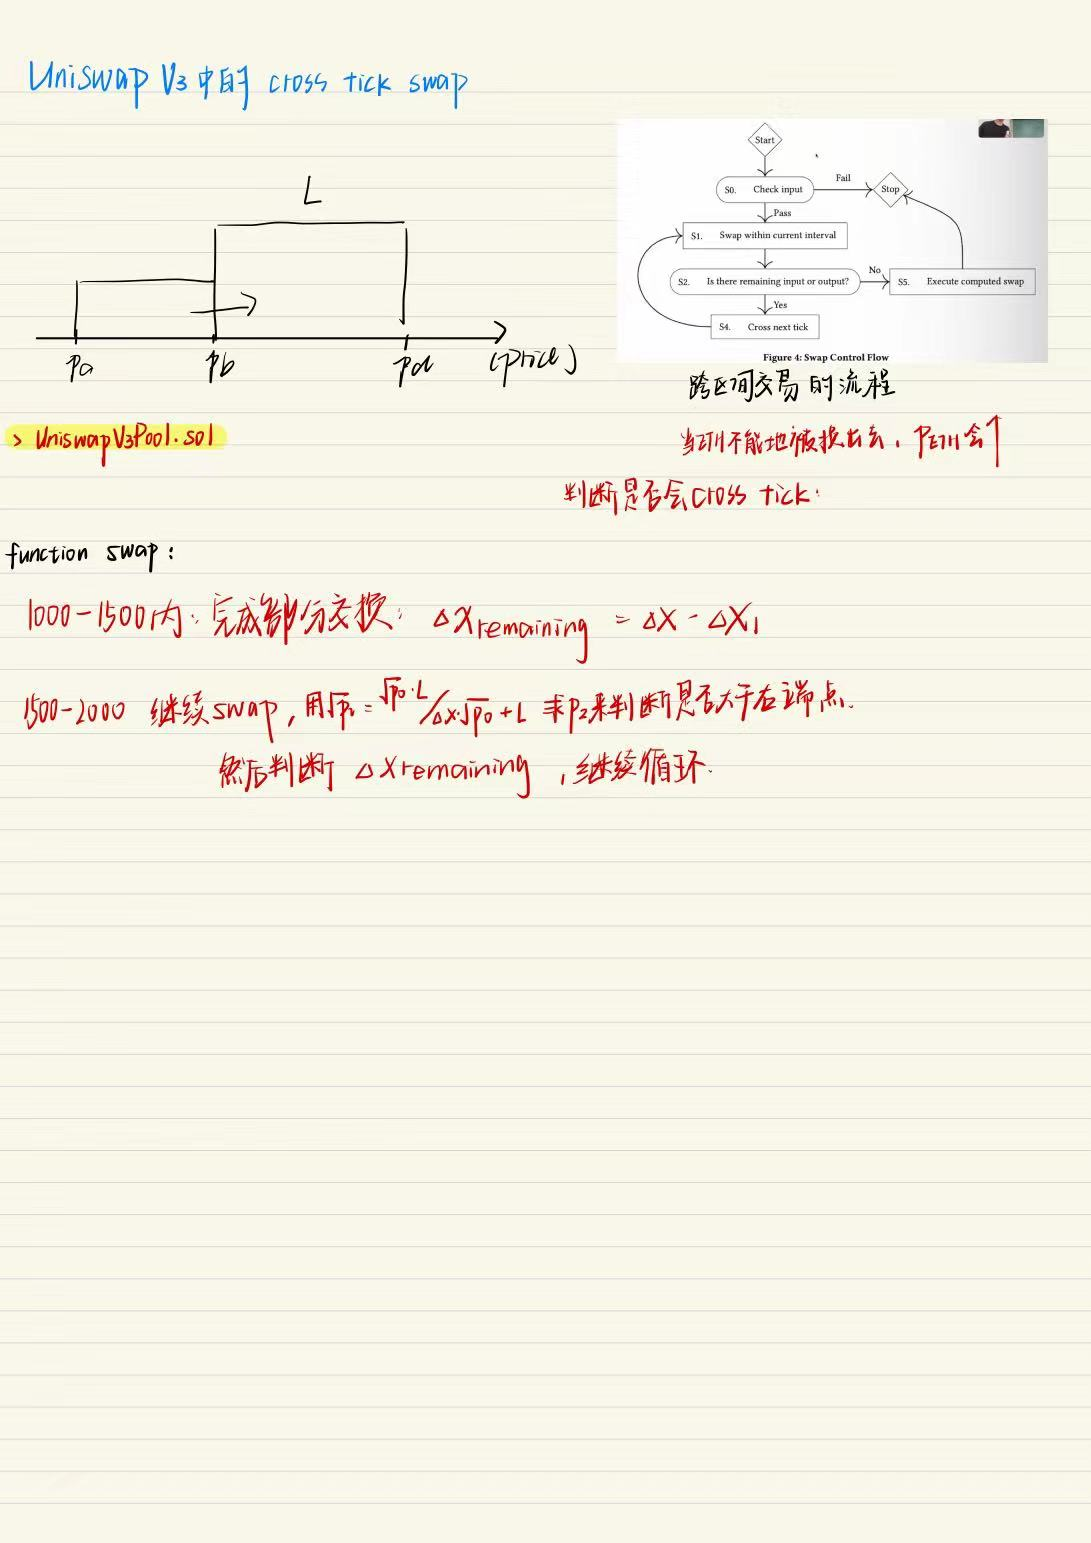 Uniswap V3中的 cross tick swap
L
pa pb pd (price)
Start
S0. Check input
Fail
Stop
Pass
S1. Swap within current interval
S2. Is there remaining input or output?
No
S5. Execute computed swap
Yes
S4. Cross next tick
Figure 4: Swap Control Flow
跨区间交易的流程
> UniswapV3Pool.sol
当ETH不能地被换出去, PETH会↑
判断是否会cross tick:
function swap:
1000-1500内: 完成部分交换: ΔXremaining = ΔX - ΔX1
1500-2000 继续swap, 用√p1 = √p0·L/Δx·√p0+L 求p2来判断是否大于右端点.
然后判断 ΔXremaining, 继续循环.